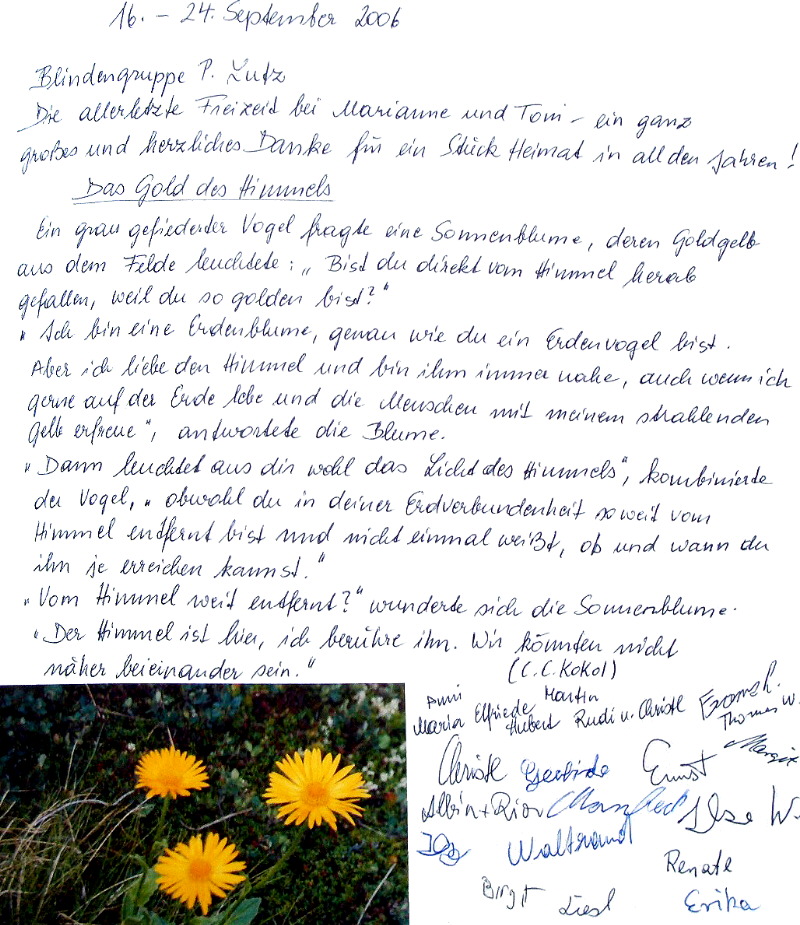 16. – 24. September 2006
Blindengruppe P. Lutz
Die allerletzte Freizeit bei Marianne und Toni – ein ganz
großes und herzliches Danke für ein Stück Heimat in all den Jahren!
Das Gold des Himmels
Ein grau gefiederter Vogel fragte eine Sonnenblume, deren Goldgelb
aus dem Felde leuchtete: „Bist du direkt vom Himmel herab
gefallen, weil du so golden bist?"
"Ich bin eine Erdenblume, genau wie du ein Erdenvogel bist.
Aber ich liebe den Himmel und bin ihm immer nahe, auch wenn ich
gerne auf der Erde lebe und die Menschen mit meinem strahlenden
Gelb erfreue", antwortete die Blume.
"Dann leuchtet aus dir wohl das Licht des Himmels", kombinierte
der Vogel, "obwohl du in deiner Erdverbundenheit soweit vom
Himmel entfernt bist und nicht einmal weißt, ob und wann du
ihn je erreichen kannst."
"Vom Himmel weit entfernt?" wunderte sich die Sonnenblume.
"Der Himmel ist hier, ich berühre ihn. Wir könnten nicht
näher beieinander sein."
(C.C. Kokol)
Anni Martin
Maria Elfriede Hubert Rudi u. Christl
Thomas W.
Margit
Christl Gertride Ernst
Albin + Rior Manfred Ilse W.
Waltraud
Renate
Birgit Liesl Erika